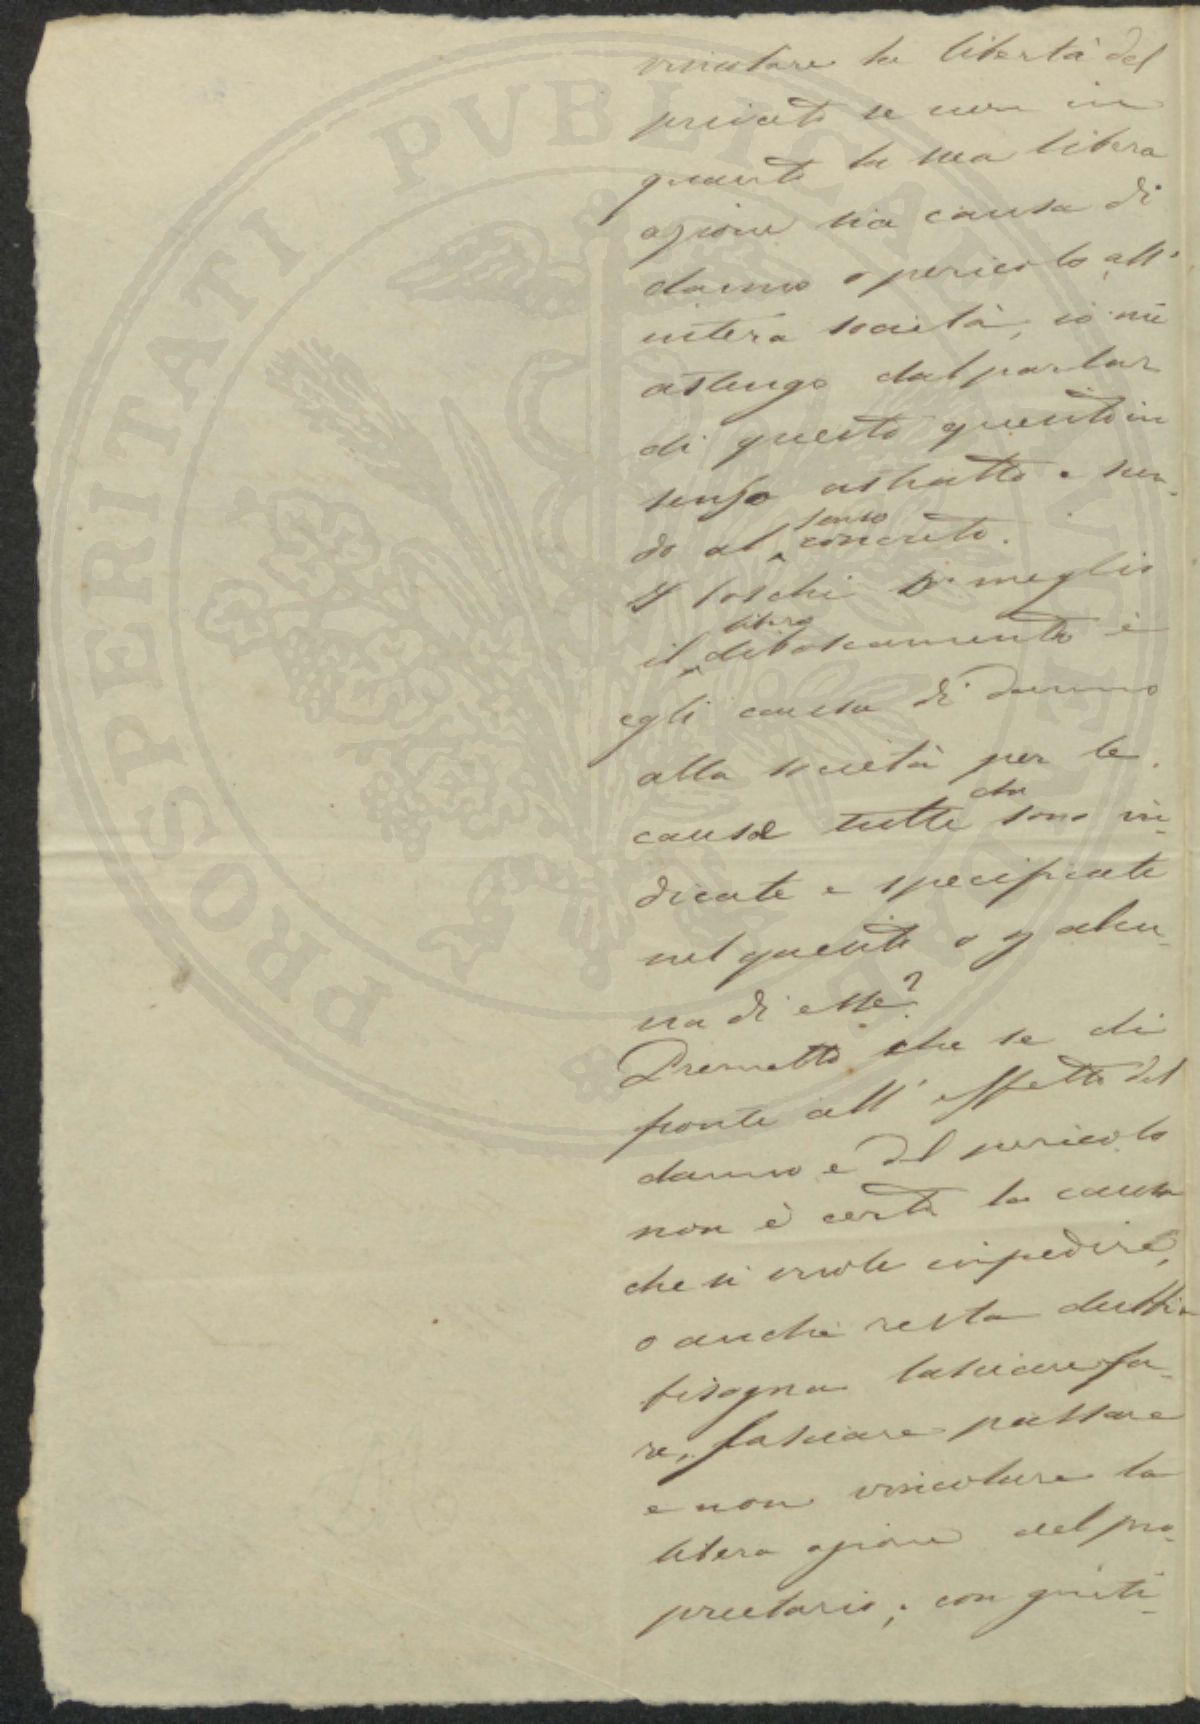 PROSPERITATI PVBLICAE AVGENDAE
vincolare la libertà del
privato se non in
quanto la sua libera
azione sia causa di
danno o pericolo all'
intera società, io mi
astengo dal parlar
di questo quesito in
senso astratto e scen-
do al senso concreto.
I boschi o meglio
il libero diboscamento è
egli causa di danno
alla società per le
cause tutte che sono in-
dicate e specificate
nel quesito o p alcu-
na di esse?
Premetto che se di
fronte all' effetto del
danno e del pericolo
non è certa la causa
che si vuole impedire,
o anche resta dubbia
bisogna lasciare fa-
re, lasciare passare
e non vincolare la
libera azione del pro-
prietario; con questi-